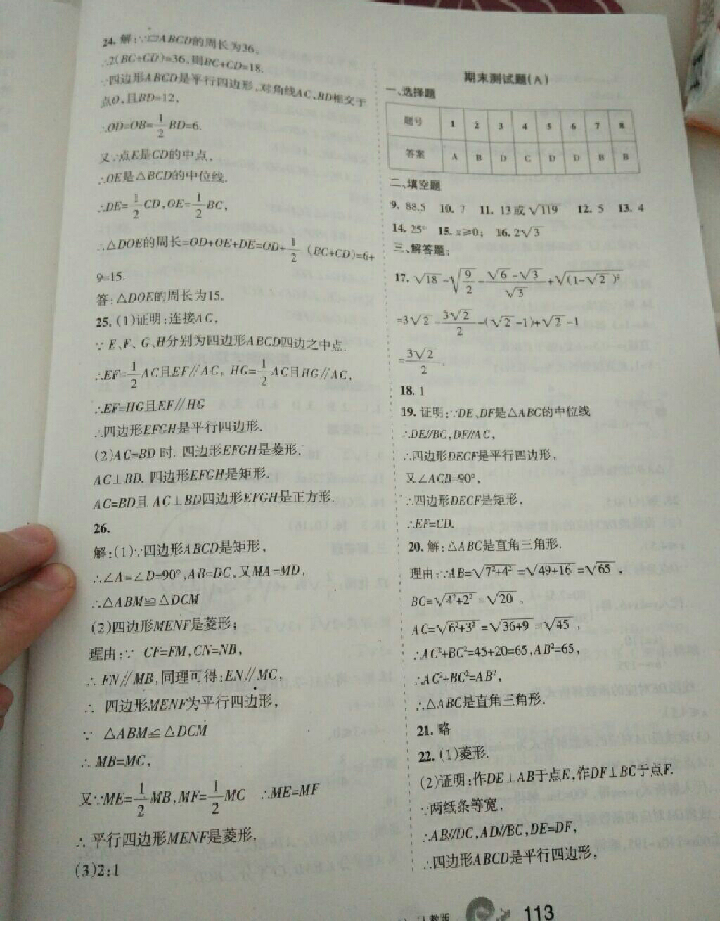 24. 解:∵▱ABCD的周长为36,
∴2(BC+CD)=36,则BC+CD=18.
∵四边形ABCD是平行四边形,对角线AC,BD相交于
点O,且BD=12,
∴OD=OB=1/2 BD=6.
又∵点E是CD的中点,
∴OE是△BCD的中位线.
∴DE=1/2 CD,OE=1/2 BC,
∴△DOE的周长=OD+OE+DE=OD+1/2 (BC+CD)=6+
9=15.
答:△DOE的周长为15.
25. (1)证明:连接AC,
∵E、F、G、H分别为四边形ABCD四边之中点.
∴EF=1/2 AC且EF∥AC, HG=1/2 AC且HG∥AC,
∴EF=HG且EF∥HG
∴四边形EFGH是平行四边形.
(2)AC=BD 时. 四边形EFGH是菱形.
AC⊥BD. 四边形EFGH是矩形.
AC=BD且 AC⊥BD四边形EFGH是正方形.
26.
解:(1)∵四边形ABCD是矩形,
∴∠A=∠D=90°,AB=DC,又MA=MD,
∴△ABM≌△DCM
(2)四边形MENF是菱形;
理由:∵ CF=FM,CN=NB,
∴ FN∥MB,同理可得:EN∥MC,
∴ 四边形MENF为平行四边形,
∵ △ABM≌△DCM
∴ MB=MC,
又∵ME=1/2 MB,MF=1/2 MC ∴ME=MF
∴ 平行四边形MENF是菱形.
(3)2:1
期末测试题(A)
一、选择题
题号 1 2 3 4 5 6 7 8
答案 A B D C D D B B
二、填空题
9. 88.5 10. 7 11. 13或√119 12. 5 13. 4
14. 25° 15. x≥0; 16. 2√3
三、解答题:
17. √18-√(9/2)-(√6-√3)/√3+√((1-√2)²)
=3√2-3√2/2-(√2-1)+√2-1
=3√2/2.
18. 1
19. 证明:∵DE,DF是△ABC的中位线
∴DE∥BC,DF∥AC,
∴四边形DECF是平行四边形,
又∠ACB=90°,
∴四边形DECF是矩形,
∴EF=CD.
20. 解:△ABC是直角三角形.
理由:∵AB=√(7²+4²)=√(49+16)=√65,
BC=√(4²+2²)=√20,
AC=√(6²+3²)=√(36+9)=√45,
∴AC²+BC²=45+20=65,AB²=65,
∴AC²+BC²=AB²,
∴△ABC是直角三角形.
21. 略
22. (1)菱形.
(2)证明:作DE⊥AB于点E,作DF⊥BC于点F.
∵两纸条等宽,
∴AB∥DC,AD∥BC,DE=DF,
∴四边形ABCD是平行四边形,
人教版 113